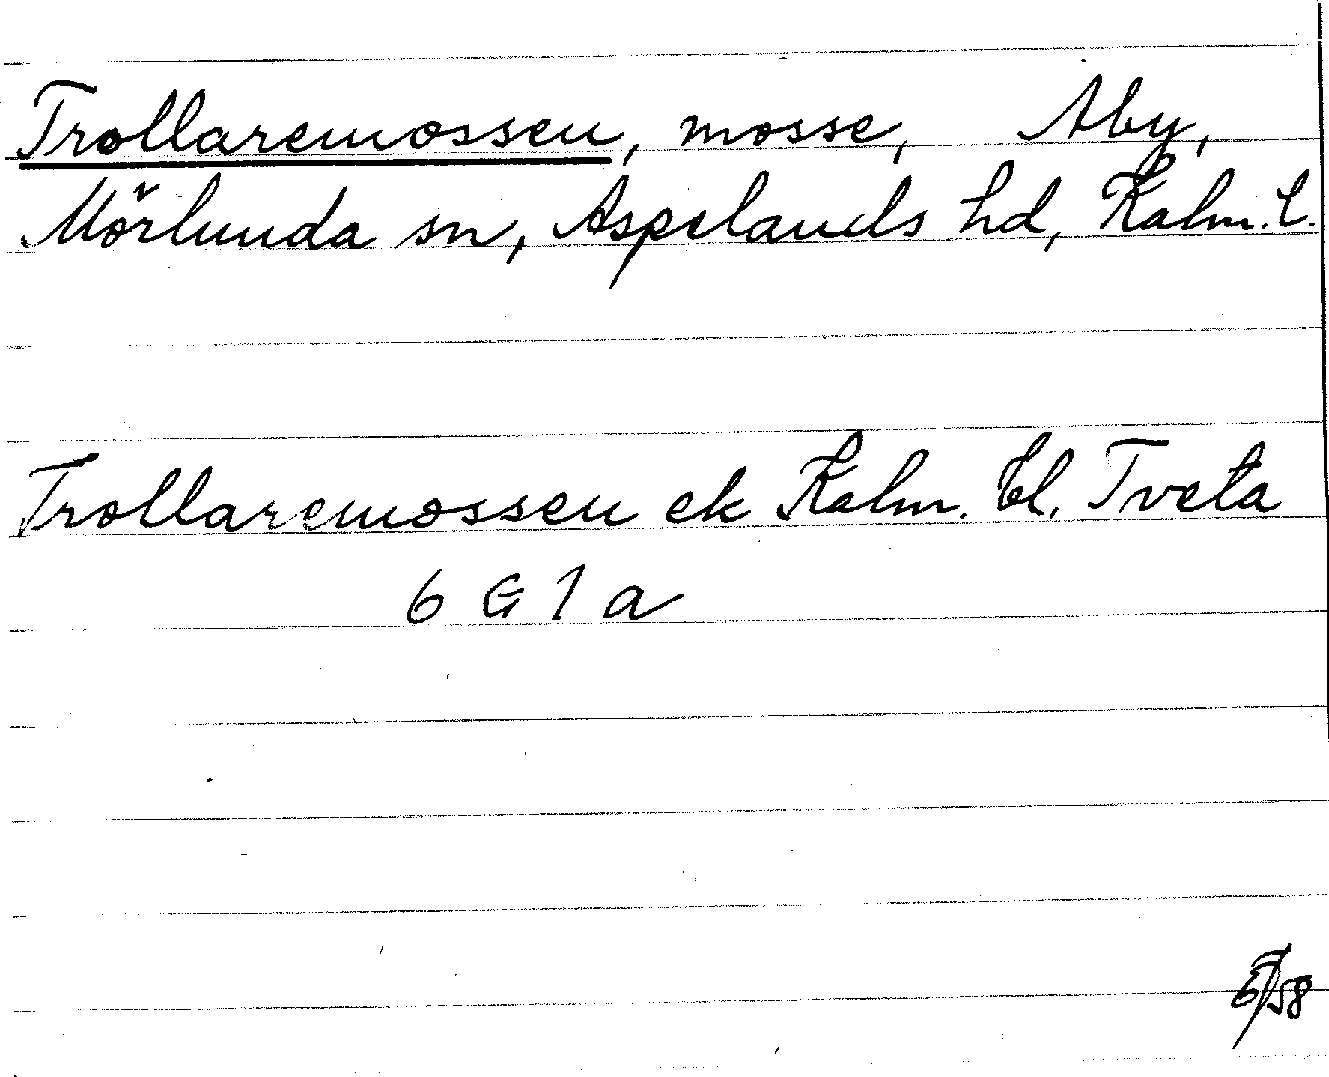 Trollaremossen, mosse, Åby,
Mörlunda sn, Aspelands hd, Kalm. l.
Trollaremossen ek Kalm. bl. Tveta
6 G 1 a
/58